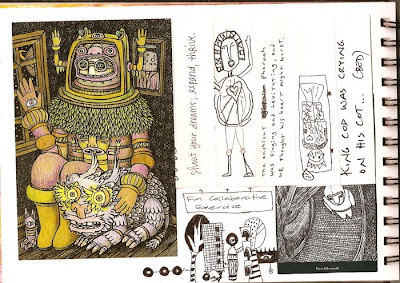 Shout your dreams; expand, thrive.
The Pharoah
was singing and levitating, and
he thought his heart might burst.
KING COD WAS CRYING
ON HIS COT... (BED)
Fun Collaborative
Exercise